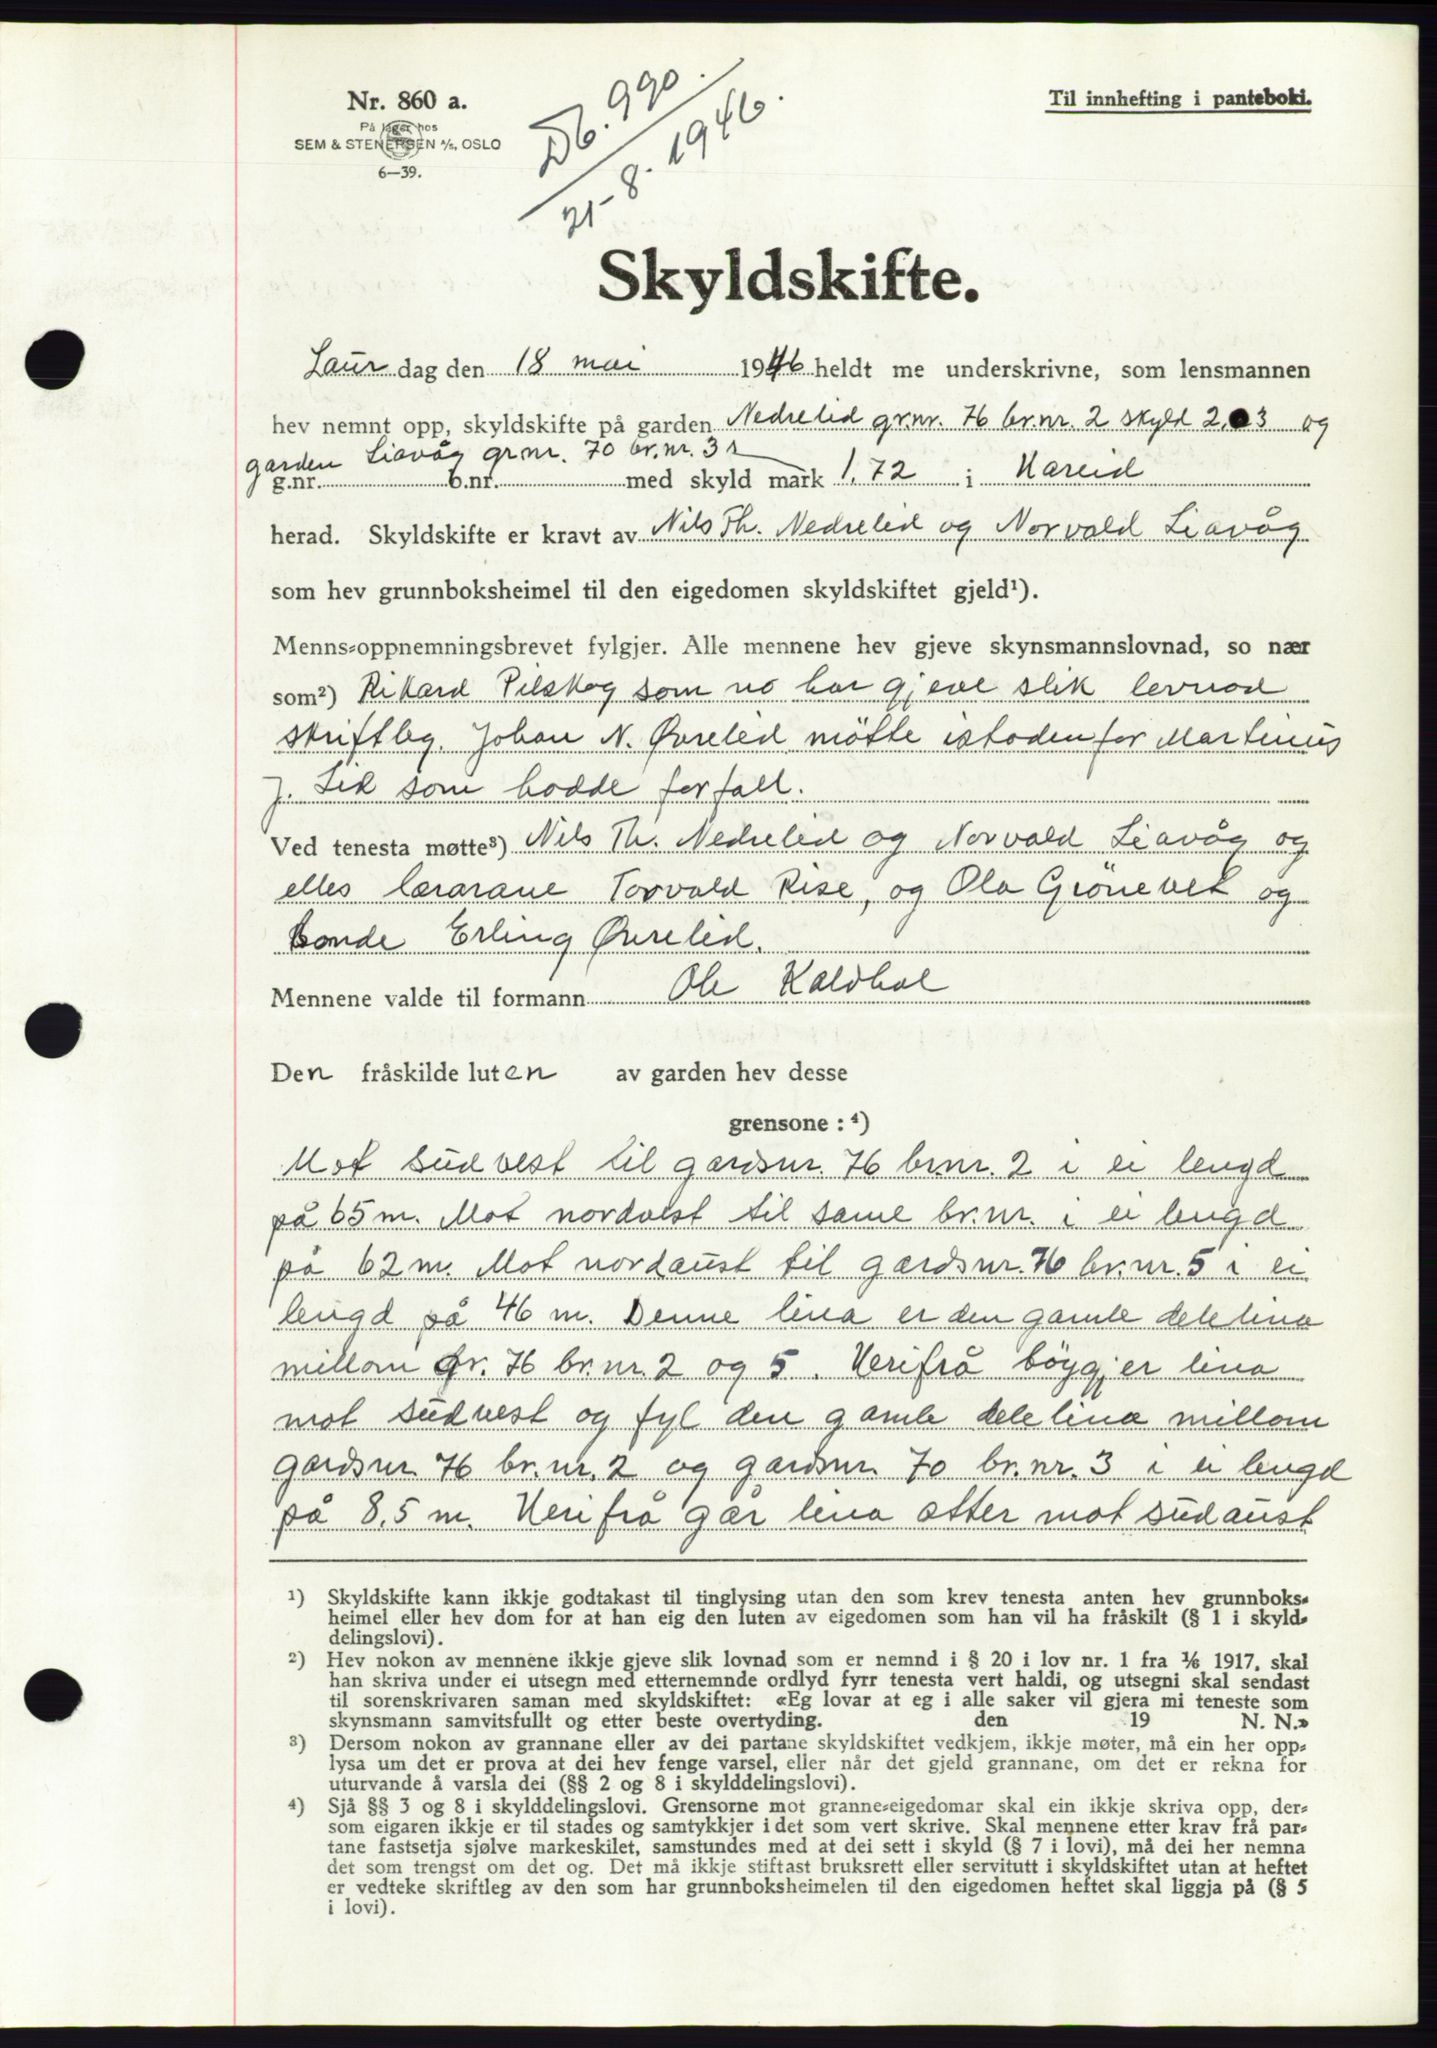 Nr. 860 a.
På lager hos
SEM & STENERSEN A/S, OSLO
6—39.
Db. 990.
21-8-1946.
Til innhefting i panteboki.
Skyldskifte.
Laur dag den 18 mai 1946 heldt me underskrivne, som lensmannen
hev nemnt opp, skyldskifte på garden Nedrelid gr.nr. 76 br.nr. 2 skyld 2,03 og
garden Liavåg gr.nr. 70 br.nr. 3
g.nr. b.nr. med skyld mark 1.72 i Hareid
herad. Skyldskifte er kravt av Nils Th. Nedrelid og Norvald Liavåg
som hev grunnboksheimel til den eigedomen skyldskiftet gjeld¹).
Menns-oppnemningsbrevet fylgjer. Alle mennene hev gjeve skynsmannslovnad, so nær
som²) Rikard Pilskog som no har gjeve slik lovnad
skriftleg. Johan N. Øvrelid møtte istaden for Martinus
J. Lid som hadde forfall.
Ved tenesta møtte³) Nils Th. Nedrelid og Norvald Liavåg og
elles lærarane Torvald Rise, og Ola Grönevet og
bonde Erling Øvrelid.
Mennene valde til formann Ole Kaldhol
Den fråskilde luten av garden hev desse
grensone : ⁴)
Mot südvest til gardsnr. 76 br.nr. 2 i ei lengd
på 65 m. Mot nordvest til same br.nr. i ei lengd
på 62 m. Mot nordaust til gardsnr. 76 br.nr. 5 i ei
lengd på 46 m. Denne lina er den gamle delelina
millom gr. 76 br.nr. 2 og 5. Herifrå böygjer lina
mot südvest og fyl den gamle delelina millom
gardsnr. 76 br.nr. 2 og gardsnr. 70 br.nr. 3 i ei lengd
på 8,5 m. Herifrå går lina atter mot südaust
¹) Skyldskifte kann ikkje godtakast til tinglysing utan den som krev tenesta anten hev grunnboks-
heimel eller hev dom for at han eig den luten av eigedomen som han vil ha fråskilt (§ 1 i skyld-
delingslovi).
²) Hev nokon av mennene ikkje gjeve slik lovnad som er nemnd i § 20 i lov nr. 1 fra ¹⁄₆ 1917, skal
han skriva under ei utsegn med etternemnde ordlyd fyrr tenesta vert haldi, og utsegni skal sendast
til sorenskrivaren saman med skyldskiftet: «Eg lovar at eg i alle saker vil gjera mi teneste som
skynsmann samvitsfullt og etter beste overtyding. den 19 N. N.»
³) Dersom nokon av grannane eller av dei partane skyldskiftet vedkjem, ikkje møter, må ein her opp-
lysa um det er prova at dei hev fenge varsel, eller når det gjeld grannane, om det er rekna for
uturvande å varsla dei (§§ 2 og 8 i skylddelingslovi).
⁴) Sjå §§ 3 og 8 i skylddelingslovi. Grensorne mot granne-eigedomar skal ein ikkje skriva opp, der-
som eigaren ikkje er til stades og samtykkjer i det som vert skrive. Skal mennene etter krav frå par-
tane fastsetja sjølve markeskilet, samstundes med at dei sett i skyld (§ 7 i lovi), må dei her nemna
det som trengst om det og. Det må ikkje stiftast bruksrett eller servitutt i skyldskiftet utan at heftet
er vedteke skriftleg av den som har grunnboksheimelen til den eigedomen heftet skal liggja på (§ 5
i lovi).